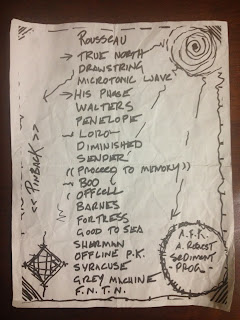 ROUSSEAU
→ TRUE NORTH
DRAWSTRING
MICROTONIC WAVE
→ HIS PHASE
WALTERS
PENELOPE
LORO
DIMINISHED
SENDER
((PROCEED TO MEMORY))
BOO
OFFCELL
BARNES
FORTRESS
GOOD TO SEA
SHERMAN
OFFLINE P.K.
SYRACUSE
GREY MACHINE
F.N.T.N.
<< PINBACK >>
A.F.K.
A. REQEST
SEDIMENT
PROG -